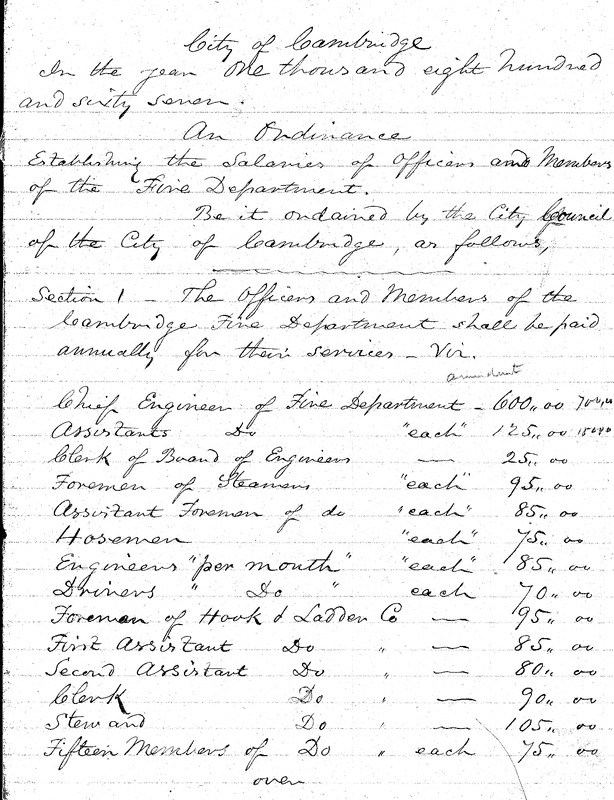 City of Cambridge
In the year One thousand eight hundred
and sixty seven.
An Ordinance
Establishing the Salaries of Officers and Members
of the Fire Department.
Be it ordained by the City Council
of the City of Cambridge, as follows,
Section 1 – The Officers and Members of the
Cambridge Fire Department shall be paid
annually for their services – Viz.
amendment
Chief Engineer of Fire Department – 600,, 00 700,00
Assistants Do "each" 125,, 00 150 00
Clerk of Board of Engineers — 25,, 00
Foremen of Steamers "each" 95,, 00
Assistant Foremen of do "each" 85,, 00
Hosemen "each" 75,, 00
Engineers "per month" "each" 85,, 00
Drivers " Do " each 70,, 00
Foreman of Hook & Ladder Co — 95,, 00
First Assistant Do " — 85,, 00
Second Assistant Do " — 80,, 00
Clerk Do " — 90,, 00
Steward Do " — 105,, 00
Fifteen Members of Do " each 75,, 00
over